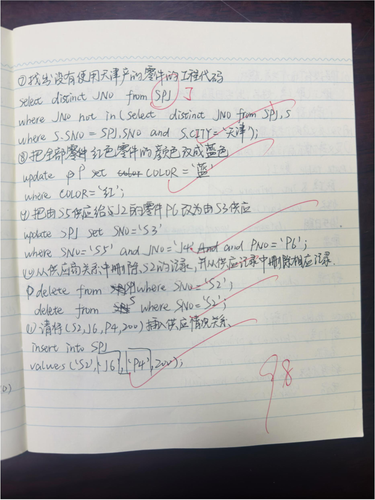 ⑦找出没有使用天津产的零件的工程代码
select distinct JNO from SPJ J
where JNO not in (select distinct JNO from SPJ,S
where S.SNO=SPJ.SNO and S.CITY='天津');
⑧把全部零件红色零件的颜色改成蓝色
update P set COLOR='蓝'
where COLOR='红';
由S5供应给J2的零件P6改为由S3供应
update SPJ set SNO='S3'
where SNO='S5' and JNO='J4' and PNO='P6';
从供应商关系中删除S2的记录,并从供应记录中删除相应记录.
delete from where SNO='S2';
delete from S where SNO='S2';
请将(S2,J6,P4,200)插入供应情况关系.
insert into SPJ
values('S2','J6','P4',200);
98